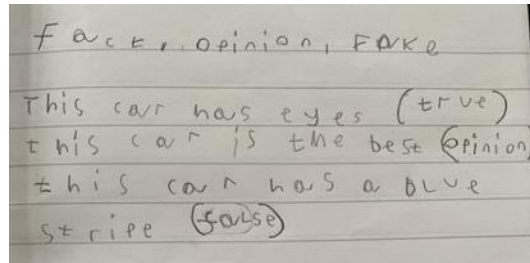 Fact, opinion, FAKe
This car has eyes (true)
this car is the best (opinion)
this car has a blue
stripe (false)